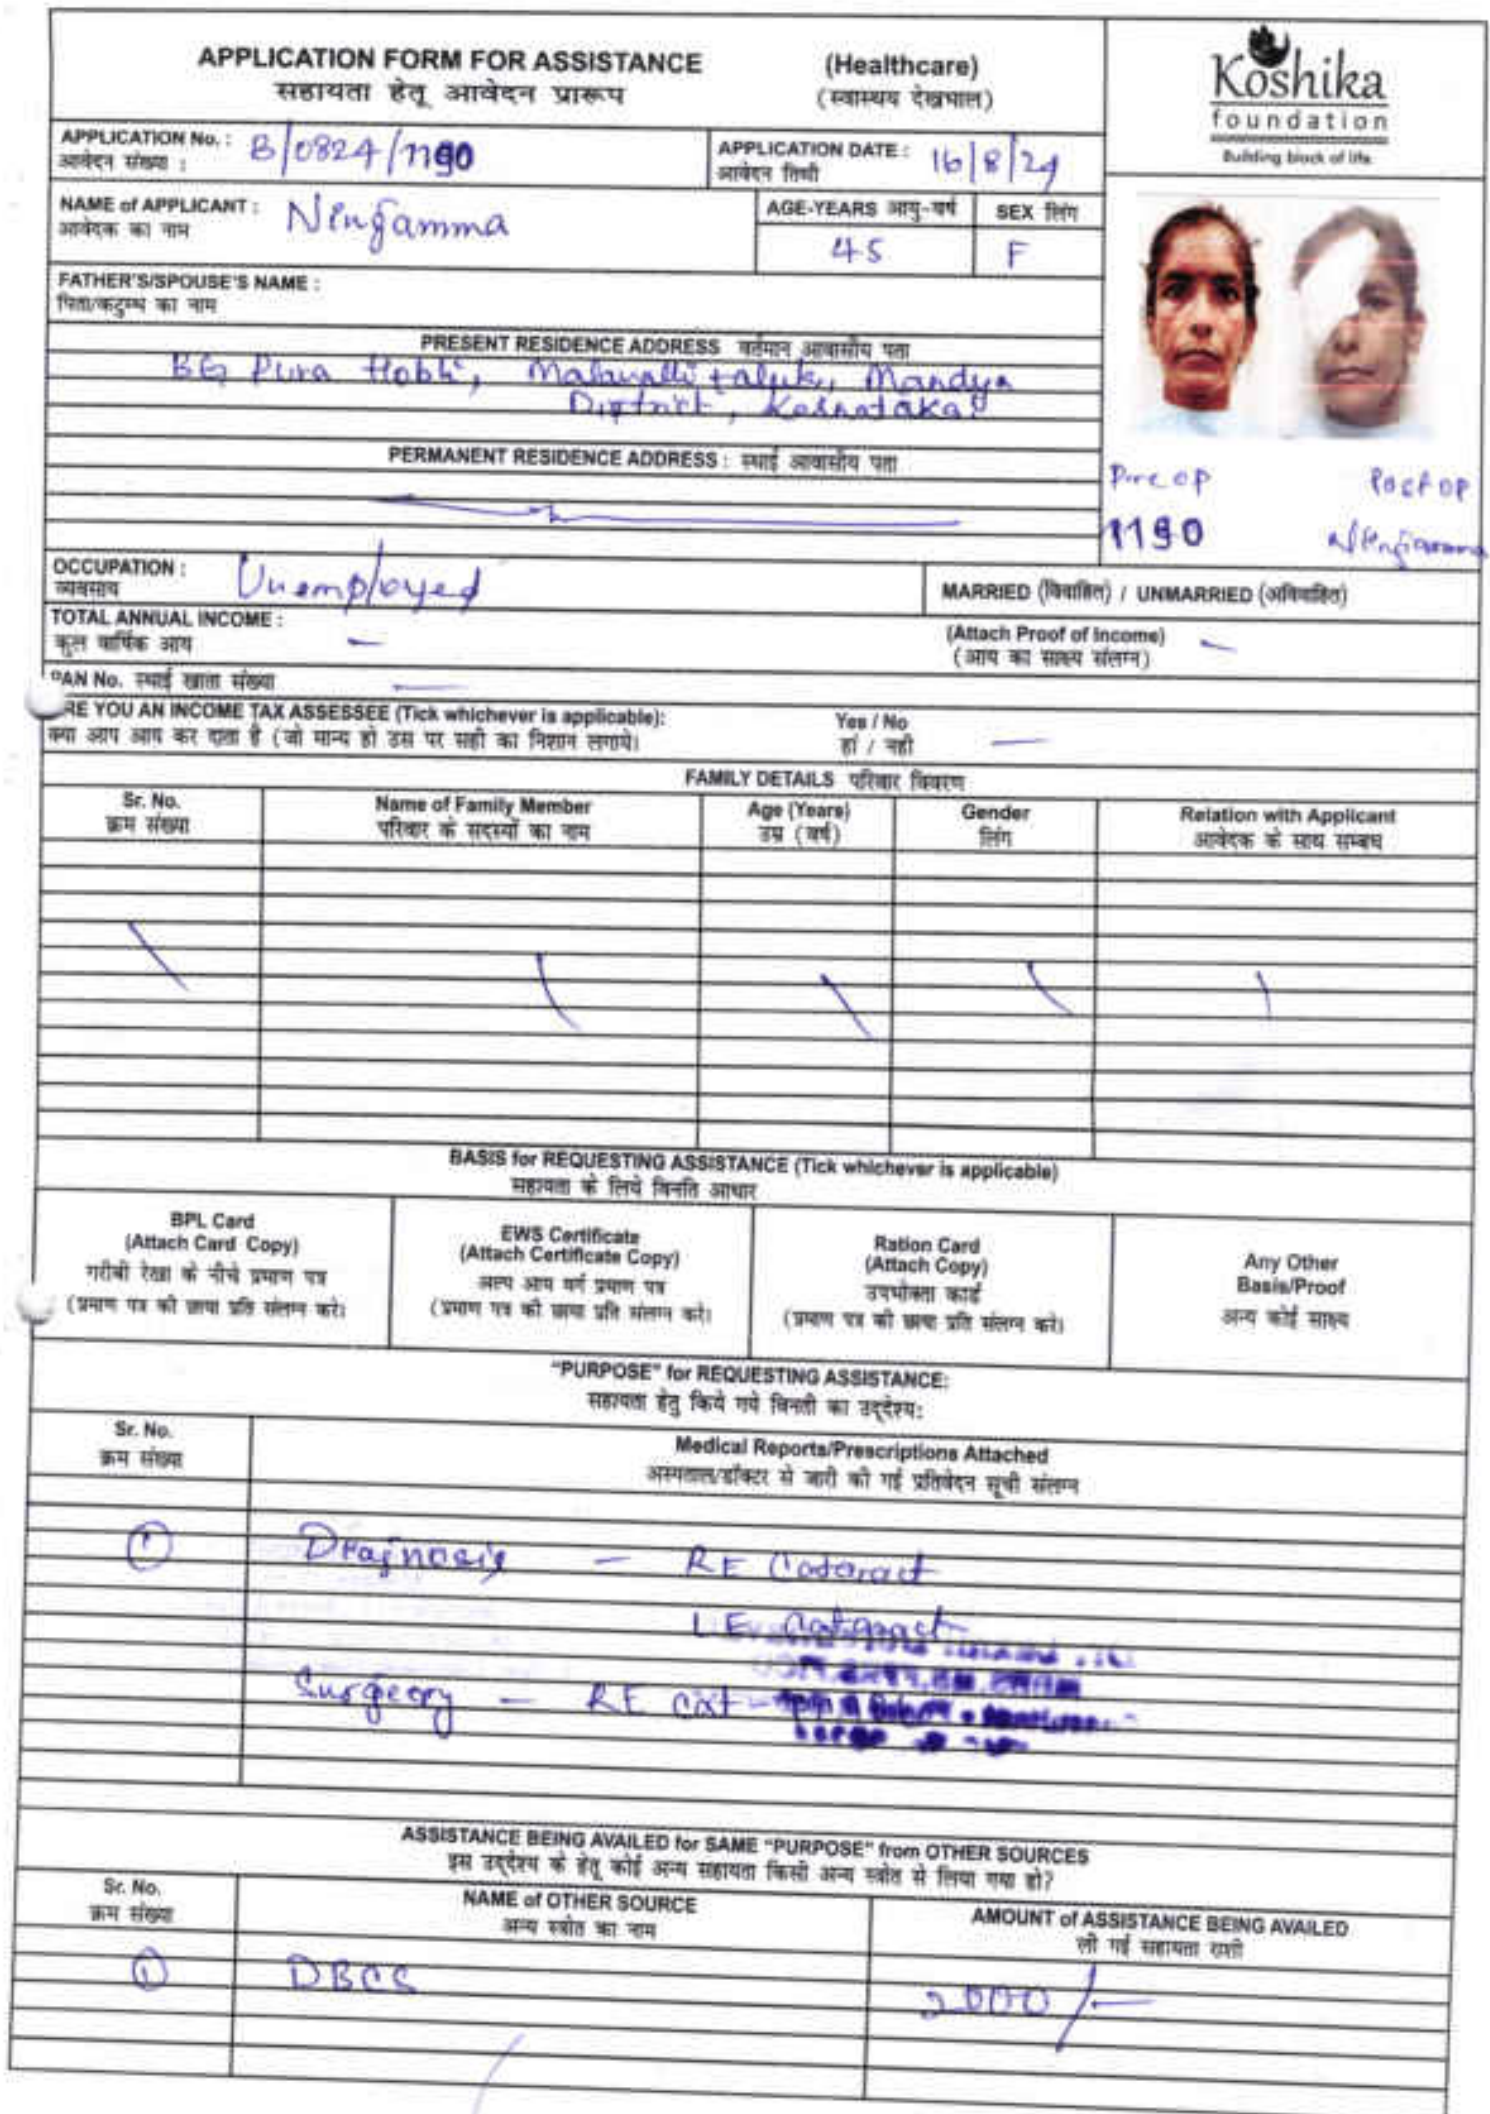 APPLICATION FORM FOR ASSISTANCE (Healthcare)
सहायता हेतू आवेदन प्रारूप (स्वास्थय देखभाल)
Koshika
foundation
Building block of life.
APPLICATION No. : B/0824/1190
आवेदन संख्या :
APPLICATION DATE : 16/8/24
आवेदन तिथी
NAME of APPLICANT : Ningamma
आवेदक का नाम
AGE-YEARS आयु-वर्ष SEX लिंग
45 F
FATHER'S/SPOUSE'S NAME :
पिता/कटुम्ध का नाम
PRESENT RESIDENCE ADDRESS वर्तमान आवासीय पता
BG Pura Hobli, Malavalli taluk, Mandya
District, Karnataka
PERMANENT RESIDENCE ADDRESS : स्थाई आवासीय पता
Pre op Post op
1190 Ningamma
OCCUPATION : Unemployed
व्यवसाय
MARRIED (विवाहित) / UNMARRIED (अविवाहित)
TOTAL ANNUAL INCOME : —
कुल वार्षिक आय
(Attach Proof of Income) —
(आय का साक्ष्य संलग्न)
PAN No. स्थाई खाता संख्या —
RE YOU AN INCOME TAX ASSESSEE (Tick whichever is applicable): Yes / No
क्या आप आय कर दाता है (जो मान्य हो उस पर सही का निशान लगाये। हां / नही —
FAMILY DETAILS परिवार विवरण
Sr. No. Name of Family Member Age (Years) Gender Relation with Applicant
क्रम संख्या परिवार के सदस्यों का नाम उम्र (वर्ष) लिंग आवेदक के साथ सम्बध
BASIS for REQUESTING ASSISTANCE (Tick whichever is applicable)
सहायता के लिये विनति आधार
BPL Card
(Attach Card Copy)
गरीबी रेखा के नीचे प्रमाण पत्र
(प्रमाण पत्र की छाया प्रति संलग्न करे।
EWS Certificate
(Attach Certificate Copy)
अल्प आय वर्ग प्रमाण पत्र
(प्रमाण पत्र की छाया प्रति संलग्न करे।
Ration Card
(Attach Copy)
उपभोक्ता कार्ड
(प्रमाण पत्र की छाया प्रति संलग्न करे।
Any Other
Basis/Proof
अन्य कोई साक्ष्य
"PURPOSE" for REQUESTING ASSISTANCE:
सहायता हेतु किये गये विनती का उद्देश्य:
Sr. No. Medical Reports/Prescriptions Attached
क्रम संख्या अस्पताल/डॉक्टर से जारी की गई प्रतिवेदन सूची संलग्न
1 Diagnosis — RE Cataract
LE Cataract
Surgery — RE cat
ASSISTANCE BEING AVAILED for SAME "PURPOSE" from OTHER SOURCES
इस उद्देश्य के हेतू कोई अन्य सहायता किसी अन्य स्त्रोत से लिया गया हो?
Sr. No. NAME of OTHER SOURCE AMOUNT of ASSISTANCE BEING AVAILED
क्रम संख्या अन्य स्त्रोत का नाम ली गई सहायता राशी
1 DBCS 2000/-